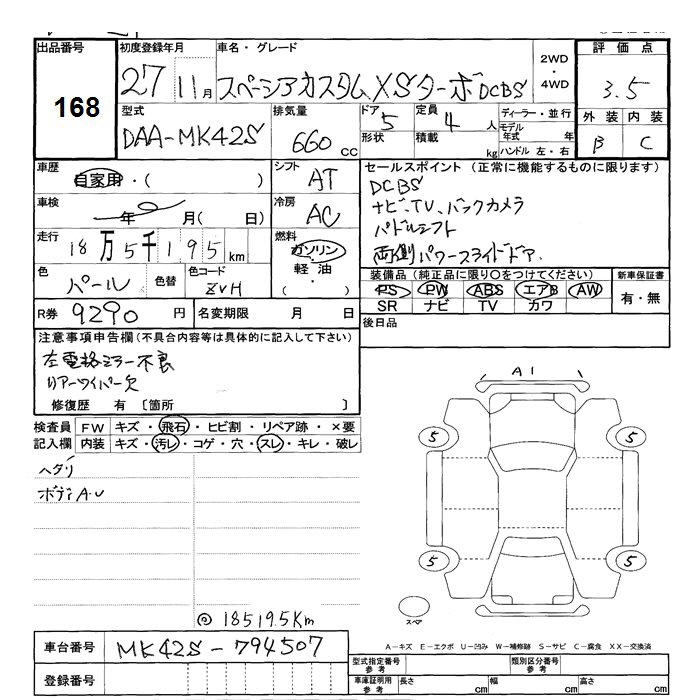 出品番号
168
初度登録年月
27 11月
車名・グレード
スペーシアカスタム XS ターボ DCBS
2WD
・
4WD
評価点
3.5
型式
DAA-MK42S
排気量
660 cc
ドア 5
形状
定員 4 人
積載 kg
ディーラー・並行
モデル年式 年
ハンドル 左・右
外装 内装
B C
車歴
自家用・( )
シフト
AT
セールスポイント (正常に機能するものに限ります)
DCBS
ナビ、TV、バックカメラ
パドルシフト
両側パワースライドドア.
車検
年 月( 日)
冷房
AC
走行
18万5千195km
燃料
ガソリン・
軽油・
( )
色
パール
色替
色コード
ZVH
装備品 (純正品に限り○をつけてください)
PS PW ABS エアB AW
SR ナビ TV カワ
新車保証書
有・無
R券 9290 円
名変期限 月 日
後日品
注意事項申告欄(不具合内容等は具体的に記入して下さい)
左電格ミラー不良
リアーワイパー欠
修復歴 有 〔箇所 〕
検査員
記入欄
FW キズ・飛石・ヒビ割・リペア跡・×要
内装 キズ・汚レ・コゲ・穴・スレ・キレ・破レ
ヘタリ
ボディA.U
◎ 185195Km
A1
5 5
5 5
スペア
A−キズ E−エクボ U−凹み W−補修跡 S−サビ C−腐食 XX−交換済
車台番号 MK42S-794507
登録番号
型式指定番号
参考
類別区分番号
参考
車庫証明用
参考
長さ cm 幅 cm 高さ cm